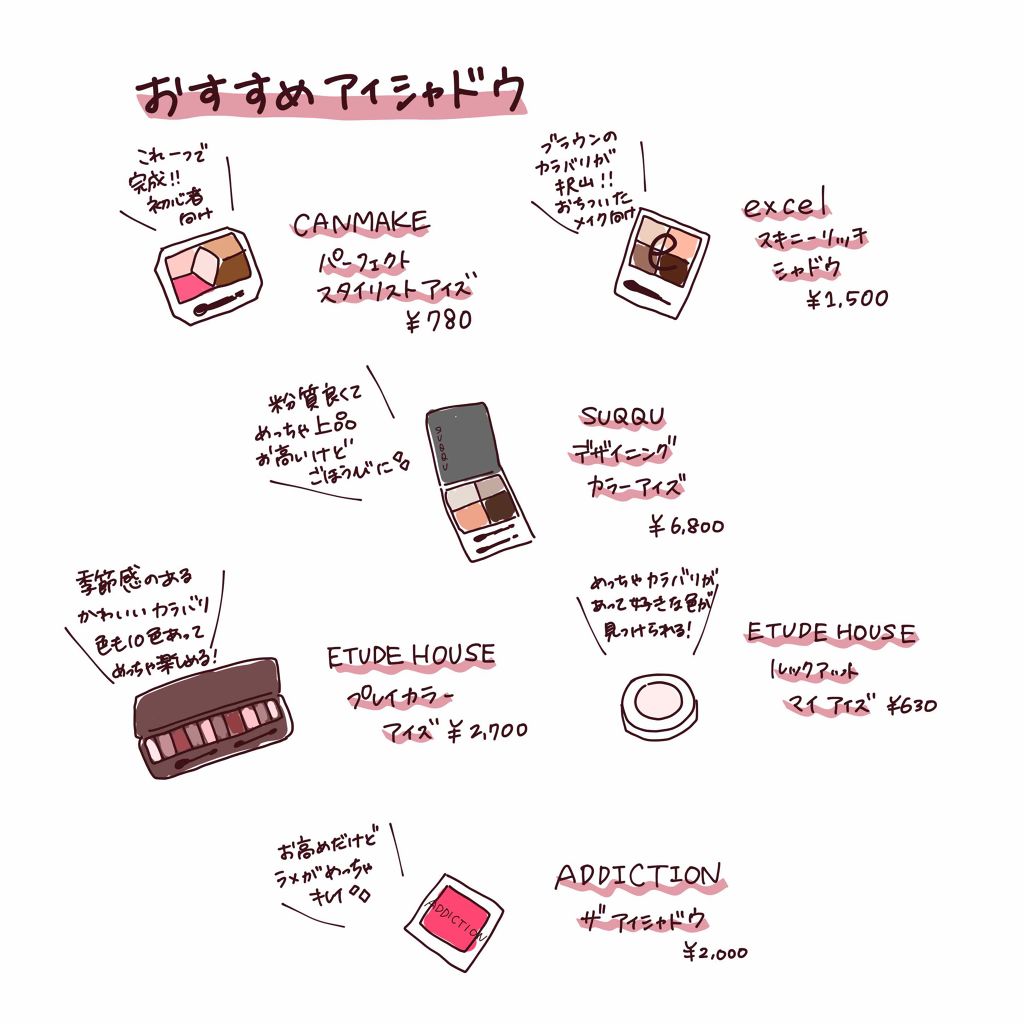 おすすめアイシャドウ
これ一つで
完成!!
初心者
向け
CANMAKE
パーフェクト
スタイリストアイズ
¥780
ブラウンの
カラバリが
沢山!!
おちついた
メイク向け
e
excel
スキニーリッチ
シャドウ
¥1,500
粉質良くて
めっちゃ上品
お高いけど
ごほうびに
SUQQU
SUQQU
デザイニング
カラーアイズ
¥6,800
季節感のある
かわいいカラバリ
色も10色あって
めっちゃ楽しめる!
ETUDE HOUSE
プレイカラー
アイズ ¥2,700
めっちゃカラバリが
あって好きな色が
見つけられる!
ETUDE HOUSE
ルックアット
マイアイズ ¥630
お高めだけど
ラメがめっちゃ
キレイ
ADDICTION
ADDICTION
ザ アイシャドウ
¥2,000